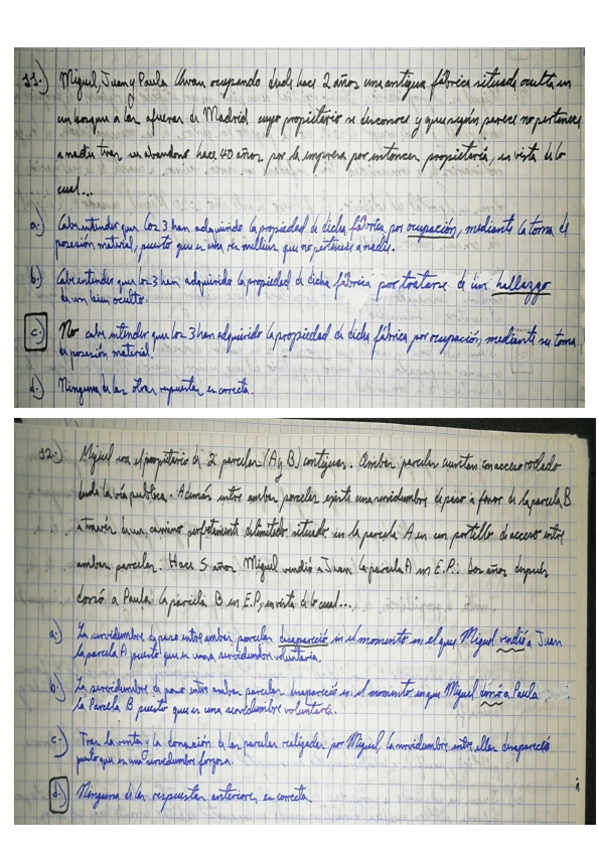 11.) Miguel, Juan y Paula llevan ocupando desde hace 2 años una antigua fábrica situada oculta en
un bosque a las afueras de Madrid cuyo propietario se desconoce y que según parece no pertenece
a nadie tras su abandono hace 40 años por la empresa por entonces propietaria, en vista de lo
cual...
a.) Cabe entender que los 3 han adquirido la propiedad de dicha fábrica por ocupación, mediante la toma de
posesión material, puesto que es una res nullius que no pertenece a nadie.
b.) Cabe entender que los 3 han adquirido la propiedad de dicha fábrica por tratarse de un hallazgo
de un bien oculto.
c.) No cabe entender que los 3 han adquirido la propiedad de dicha fábrica por ocupación, mediante su toma
de posesión material.
d.) Ninguna de las otras respuestas es correcta.
12.) Miguel era el propietario de 2 parcelas (A y B) contiguas. Ambas parcelas cuentan con acceso rodado
desde la vía pública. Además entre ambas parcelas existe una servidumbre de paso a favor de la parcela B
a través de un camino perfectamente delimitado situado en la parcela A con un portillo de acceso entre
ambas parcelas. Hace 5 años Miguel vendió a Juan la parcela A en E.P.. Dos años después
donó a Paula la parcela B en E.P, en vista de lo cual...
a.) La servidumbre de paso entre ambas parcelas desapareció en el momento en el que Miguel vendió a Juan
la parcela A puesto que es una servidumbre voluntaria.
b.) La servidumbre de paso entre ambas parcelas desapareció en el momento en que Miguel donó a Paula
la Parcela B puesto que es una servidumbre voluntaria.
c.) Tras la venta y la donación de las parcelas realizadas por Miguel, la servidumbre entre ellas desapareció
puesto que es una servidumbre forzosa.
d.) Ninguna de las respuestas anteriores es correcta.